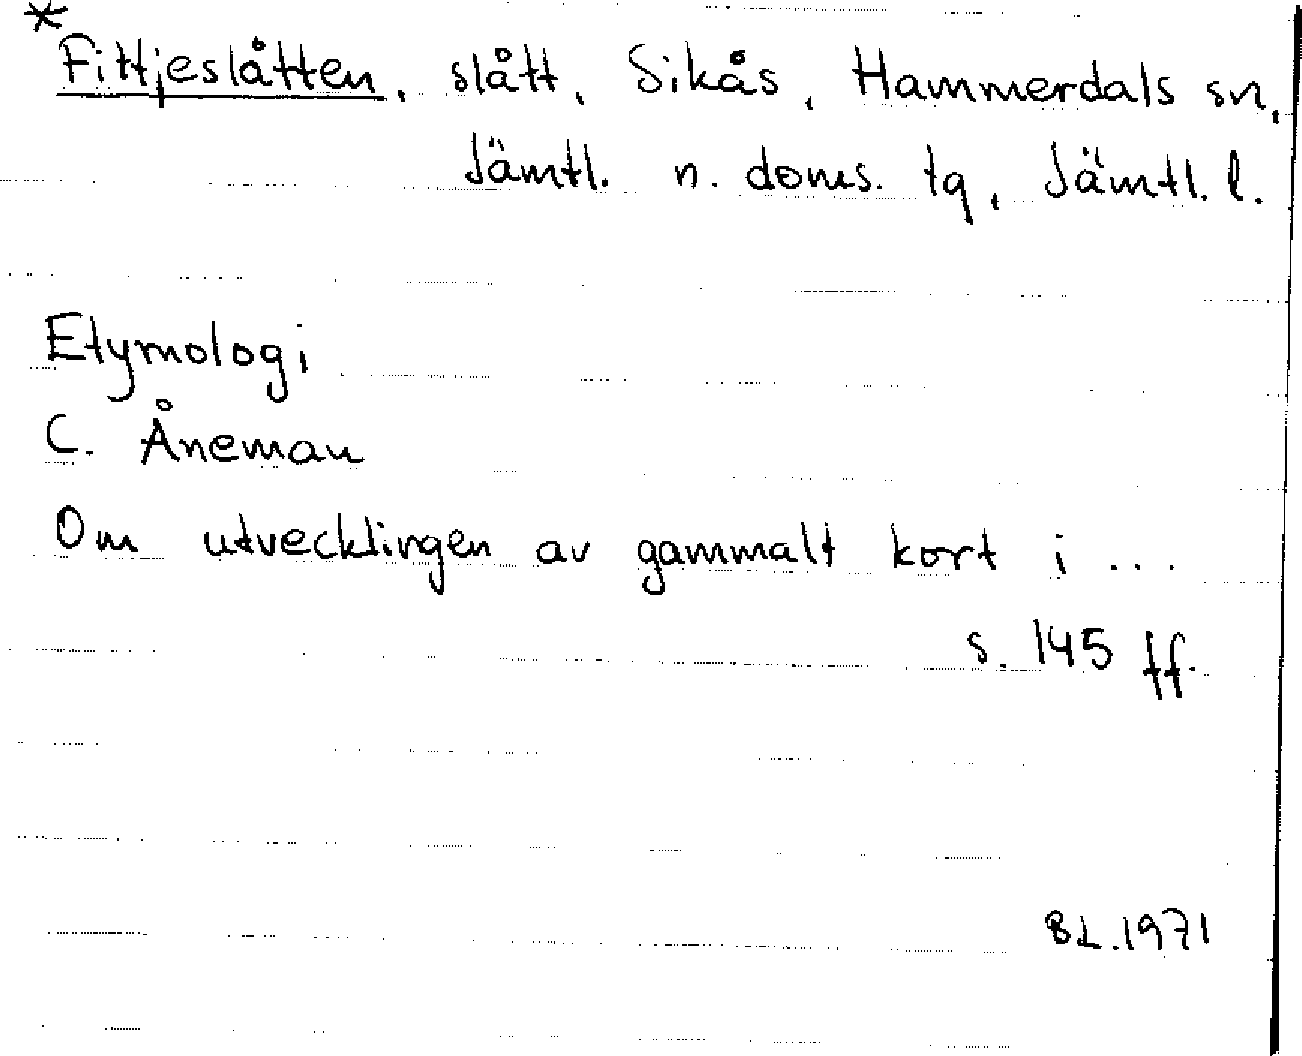 *
Fittjeslåtten, slått, Sikås, Hammerdals sn,
Jämtl. n. doms. tg, Jämtl. l.
Etymologi
C. Åneman
Om utvecklingen av gammalt kort i ...
s. 145 ff.
BL.1971